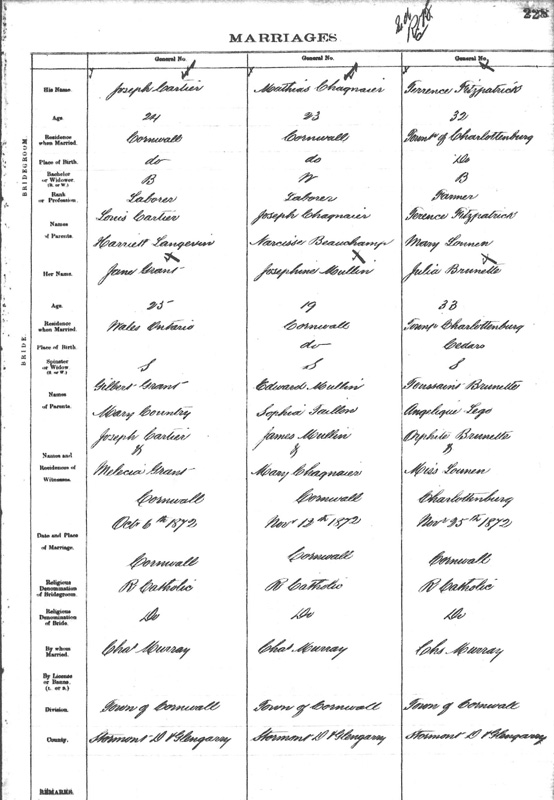 228
MARRIAGES.
General No. General No. General No.
BRIDEGROOM.
His Name. Joseph Cartier Mathias Chagnaier Terrence Fitzpatrick
Age 24 23 32
Residence when Married. Cornwall Cornwall Town^p of Charlottenburg
Place of Birth. do do Do
Bachelor or Widower. (B. or W.) B W B
Rank or Profession. Laborer Laborer Farmer
Names of Parents. Louis Cartier Joseph Chagnaier Terence Fitzpatrick
Harriett Langevin Narcisse Beauchamp Mary Lonnen
BRIDE.
Her Name. Jane Grant Josephine Mullin Julia Brunette
Age. 25 19 33
Residence when Married. Wales Ontario Cornwall Townp Charlottenburg
Place of Birth. do Cedars
Spinster or Widow (S. or W.) S S S
Names of Parents. Gilbert Grant Edward Mullin Toussaint Brunette
Mary Country Sophia Taillon Angelique Lego
Names and Residences of Witnesses. Joseph Cartier James Mullin Orphile Brunette
& & &
Melecia Grant Mary Chagnaier Miss Lonnen
Cornwall Cornwall Charlottenburg
Date and Place of Marriage. Oct 6th 1872 Nov 12th 1872 Nov 25th 1872
Cornwall Cornwall Cornwall
Religious Denomination of Bridegroom. R Catholic R Catholic R Catholic
Religious Denomination of Bride. Do Do Do
By whom Married. Chas Murray Chas Murray Chs Murray
By License or Banns. (L. or B.)
Division. Town of Cornwall Town of Cornwall Town of Cornwall
County. Stormont D & Glengarry Stormont D & Glengarry Stormont D & Glengarry
REMARKS.